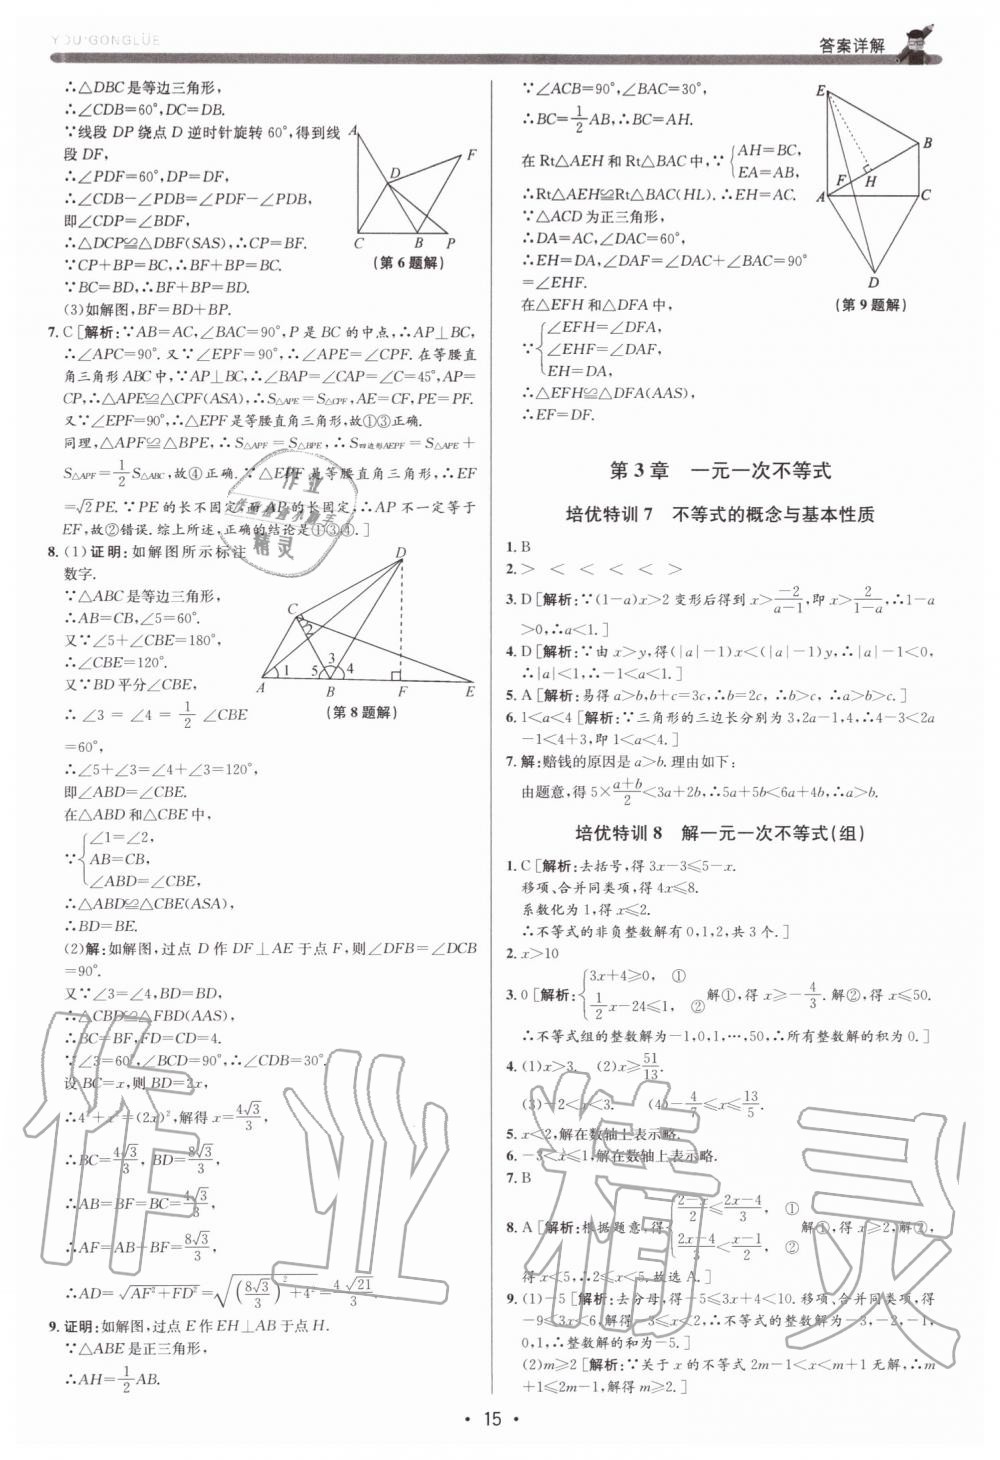 YOU GONGLÜE
答案详解
∴△DBC是等边三角形，
∴∠CDB=60°,DC=DB.
∵线段 DP 绕点 D 逆时针旋转 60°,得到线
段 DF,
∴∠PDF=60°,DP=DF,
∴∠CDB-∠PDB=∠PDF-∠PDB,
即∠CDP=∠BDF,
∴△DCP≌△DBF(SAS),∴CP=BF.
∵CP+BP=BC,∴BF+BP=BC.
∵BC=BD,∴BF+BP=BD.
A
F
D
C B P
(第6题解)
(3)如解图,BF=BD+BP.
7. C [解析:∵AB=AC,∠BAC=90°,P 是 BC 的中点,∴AP⊥BC,
∴∠APC=90°. 又∵∠EPF=90°,∴∠APE=∠CPF. 在等腰直
角三角形 ABC 中,∵AP⊥BC,∴∠BAP=∠CAP=∠C=45°,AP=
CP,∴△APE≌△CPF(ASA),∴S△APE=S△CPF,AE=CF,PE=PF.
又∵∠EPF=90°,∴△EPF 是等腰直角三角形,故①③正确.
同理,△APF≌△BPE,∴S△APF=S△BPE,∴S四边形AEPF=S△APE+
S△APF=1/2S△ABC,故④正确.∵△EPF 是等腰直角三角形,∴EF
=√2PE.∵PE的长不固定,而AP的长固定,∴AP 不一定等于
EF,故②错误.综上所述,正确的结论是①③④.]
8. (1)证明:如解图所示标注
数字.
∵△ABC是等边三角形,
∴AB=CB,∠5=60°.
又∵∠5+∠CBE=180°,
∴∠CBE=120°.
又∵BD平分∠CBE,
∴∠3=∠4=1/2∠CBE
=60°,
D
C
2
3
1 5 4
A B F E
(第8题解)
∴∠5+∠3=∠4+∠3=120°,
即∠ABD=∠CBE.
在△ABD 和△CBE 中,
∵{∠1=∠2,
AB=CB,
∠ABD=∠CBE,
∴△ABD≌△CBE(ASA),
∴BD=BE.
(2)解:如解图,过点 D 作 DF⊥AE 于点 F,则∠DFB=∠DCB
=90°.
又∵∠3=∠4,BD=BD,
∴△CBD≌△FBD(AAS),
∴BC=BF,FD=CD=4.
∵∠3=60°,∠BCD=90°,∴∠CDB=30°.
设 BC=x,则 BD=2x,
∴4²+x²=(2x)²,解得 x=4√3/3,
∴BC=4√3/3, BD=8√3/3,
∴AB=BF=BC=4√3/3,
∴AF=AB+BF=8√3/3,
∴AD=√(AF²+FD²)=√((8√3/3)²+4²)=4√21/3.
9. 证明:如解图,过点 E 作 EH⊥AB 于点 H.
∵△ABE 是正三角形,
∴AH=1/2AB.
∵∠ACB=90°,∠BAC=30°,
∴BC=1/2AB,∴BC=AH.
在 Rt△AEH 和 Rt△BAC 中,∵{AH=BC,
EA=AB,
∴Rt△AEH≌Rt△BAC(HL).∴EH=AC.
∵△ACD为正三角形,
∴DA=AC,∠DAC=60°,
∴EH=DA,∠DAF=∠DAC+∠BAC=90°
=∠EHF.
在△EFH 和△DFA 中,
∵{∠EFH=∠DFA,
∠EHF=∠DAF,
EH=DA,
∴△EFH≌△DFA(AAS),
∴EF=DF.
E
B
F H
A C
D
(第9题解)
第3章 一元一次不等式
培优特训7 不等式的概念与基本性质
1. B
2. > < < < < >
3. D [解析:∵(1-a)x>2 变形后得到 x>-2/(a-1),即 x>2/(1-a),∴1-a
>0,∴a<1.]
4. D [解析:∵由 x>y,得(|a|-1)x<(|a|-1)y,∴|a|-1<0,
∴|a|<1,∴-1<a<1.]
5. A [解析:易得 a>b,b+c=3c,∴b=2c,∴b>c,∴a>b>c.]
6. 1<a<4 [解析:∵三角形的三边长分别为 3,2a-1,4,∴4-3<2a
-1<4+3,即 1<a<4.]
7. 解:赔钱的原因是 a>b.理由如下:
由题意,得 5×(a+b)/2<3a+2b,∴5a+5b<6a+4b,∴a>b.
培优特训8 解一元一次不等式(组)
1. C [解析:去括号,得 3x-3≤5-x.
移项、合并同类项,得 4x≤8.
系数化为1,得 x≤2.
∴不等式的非负整数解有 0,1,2,共 3 个.]
2. x>10
3. 0 [解析:{3x+4≥0, ①
1/2x-24≤1, ② 解①,得 x≥-4/3.解②,得 x≤50.
∴不等式组的整数解为-1,0,1,…,50,∴所有整数解的积为0.]
4. (1)x>3. (2)x≥51/13.
(3)-2<x<3. (4)-4/7≤x≤13/5.
5. x<2,解在数轴上表示略.
6. -3<x≤1,解在数轴上表示略.
7. B
8. A [解析:根据题意,得{(2-x)/2≤(2x-4)/3, ①
(2x-4)/3<(x-1)/2, ② 解①,得 x≥2,解②,
得 x<5,∴2≤x<5.故选 A.]
9. (1)-5 [解析:去分母,得-5≤3x+4<10.移项、合并同类项,得
-9≤3x<6.解得-3≤x<2,∴不等式的整数解为-3,-2,-1,
0,1,∴整数解的和为-5.]
(2)m≥2 [解析:∵关于 x 的不等式 2m-1<x<m+1 无解,∴m
+1≤2m-1,解得 m≥2.]
• 15 •
作业
精灵
作业精灵